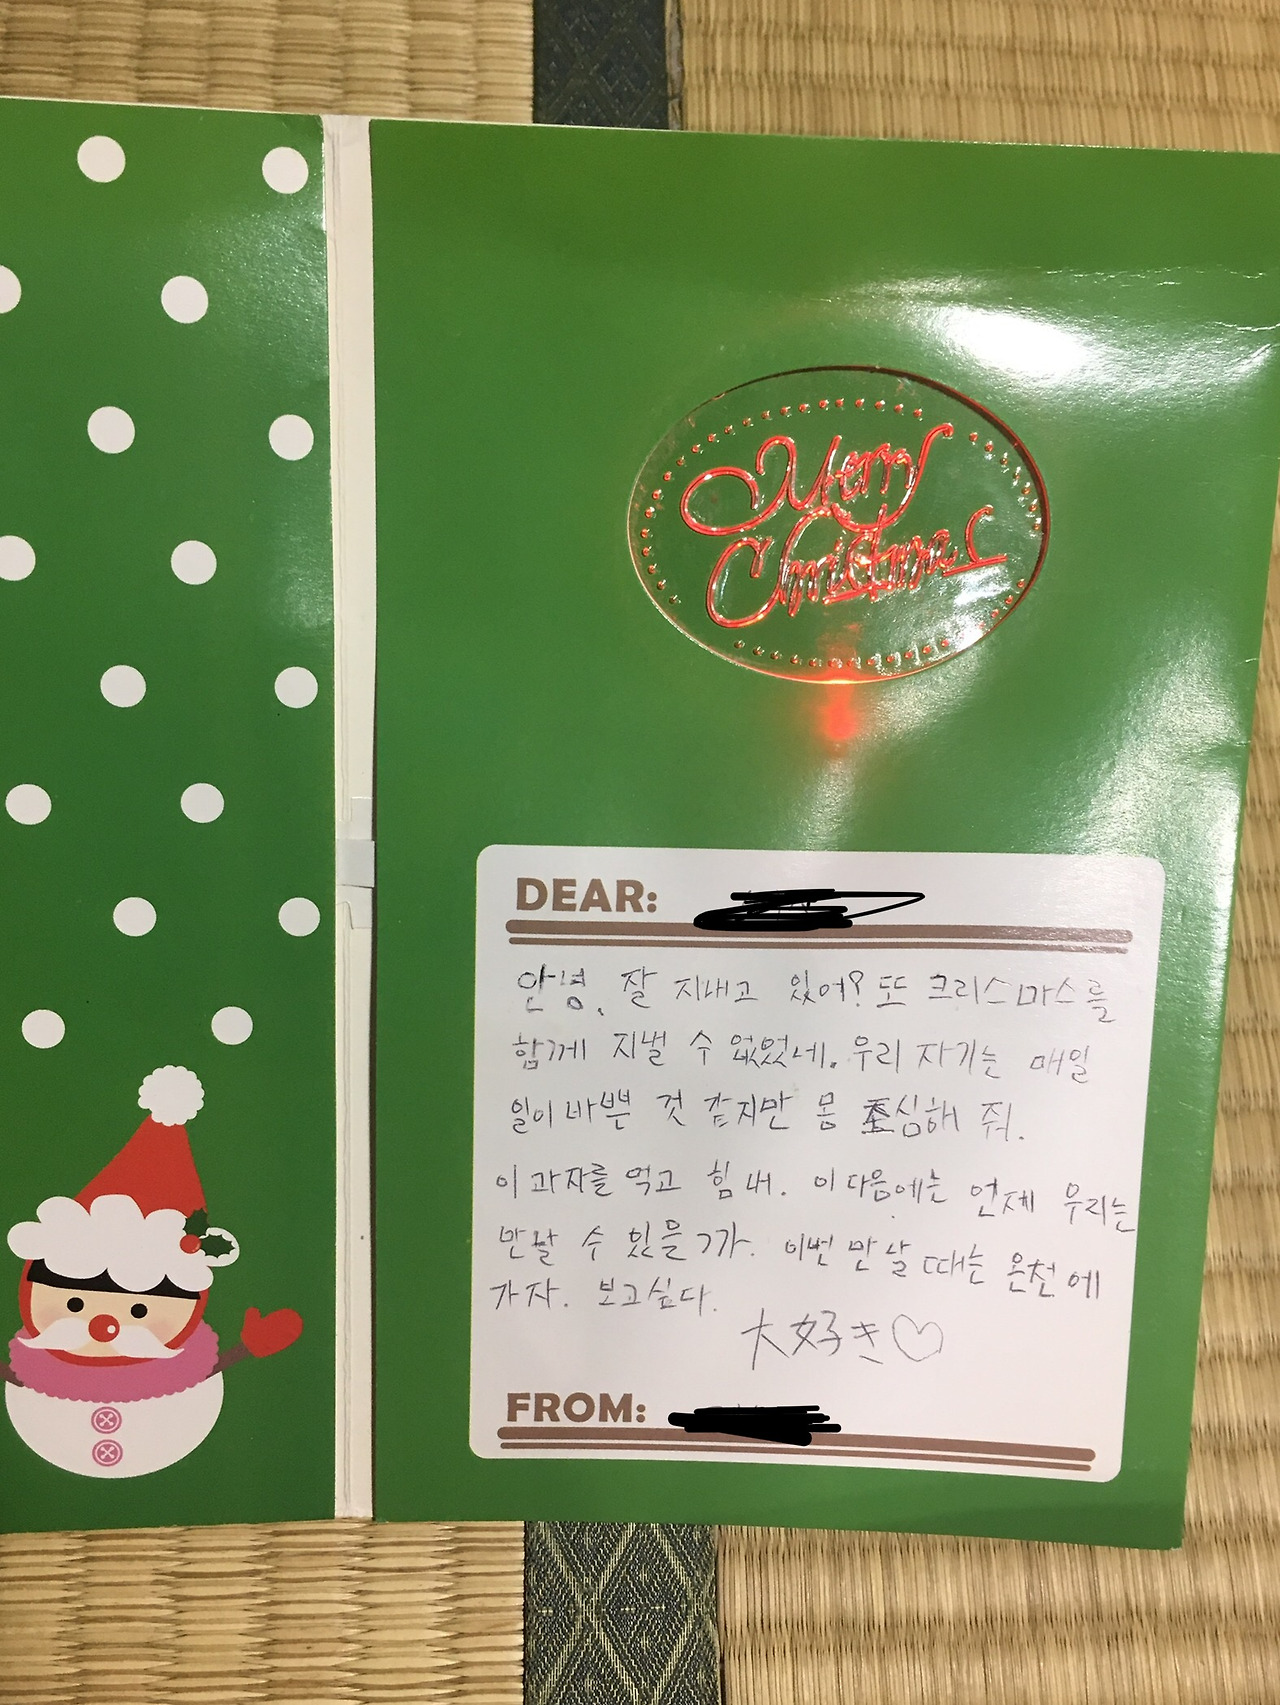 Merry
Christmas
DEAR:
안녕. 잘 지내고 있어? 또 크리스마스를
함께 지낼 수 없었네. 우리 자기는 매일
일이 바쁜 것 같지만 몸 조심해 줘.
이 과자를 먹고 힘내. 이 다음에는 언제 우리는
만날 수 있을가. 이번 만날 때는 온천에
가자. 보고싶다.
大好き♡
FROM: